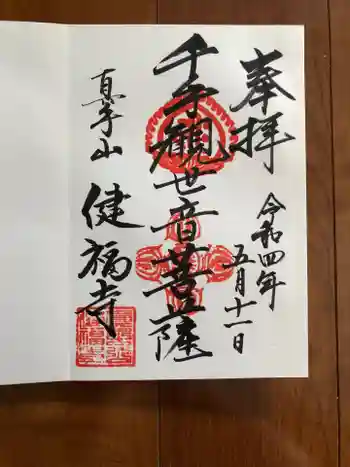 奉拝
令和四年
五月十一日
千手観世音菩薩
真手山
健福寺